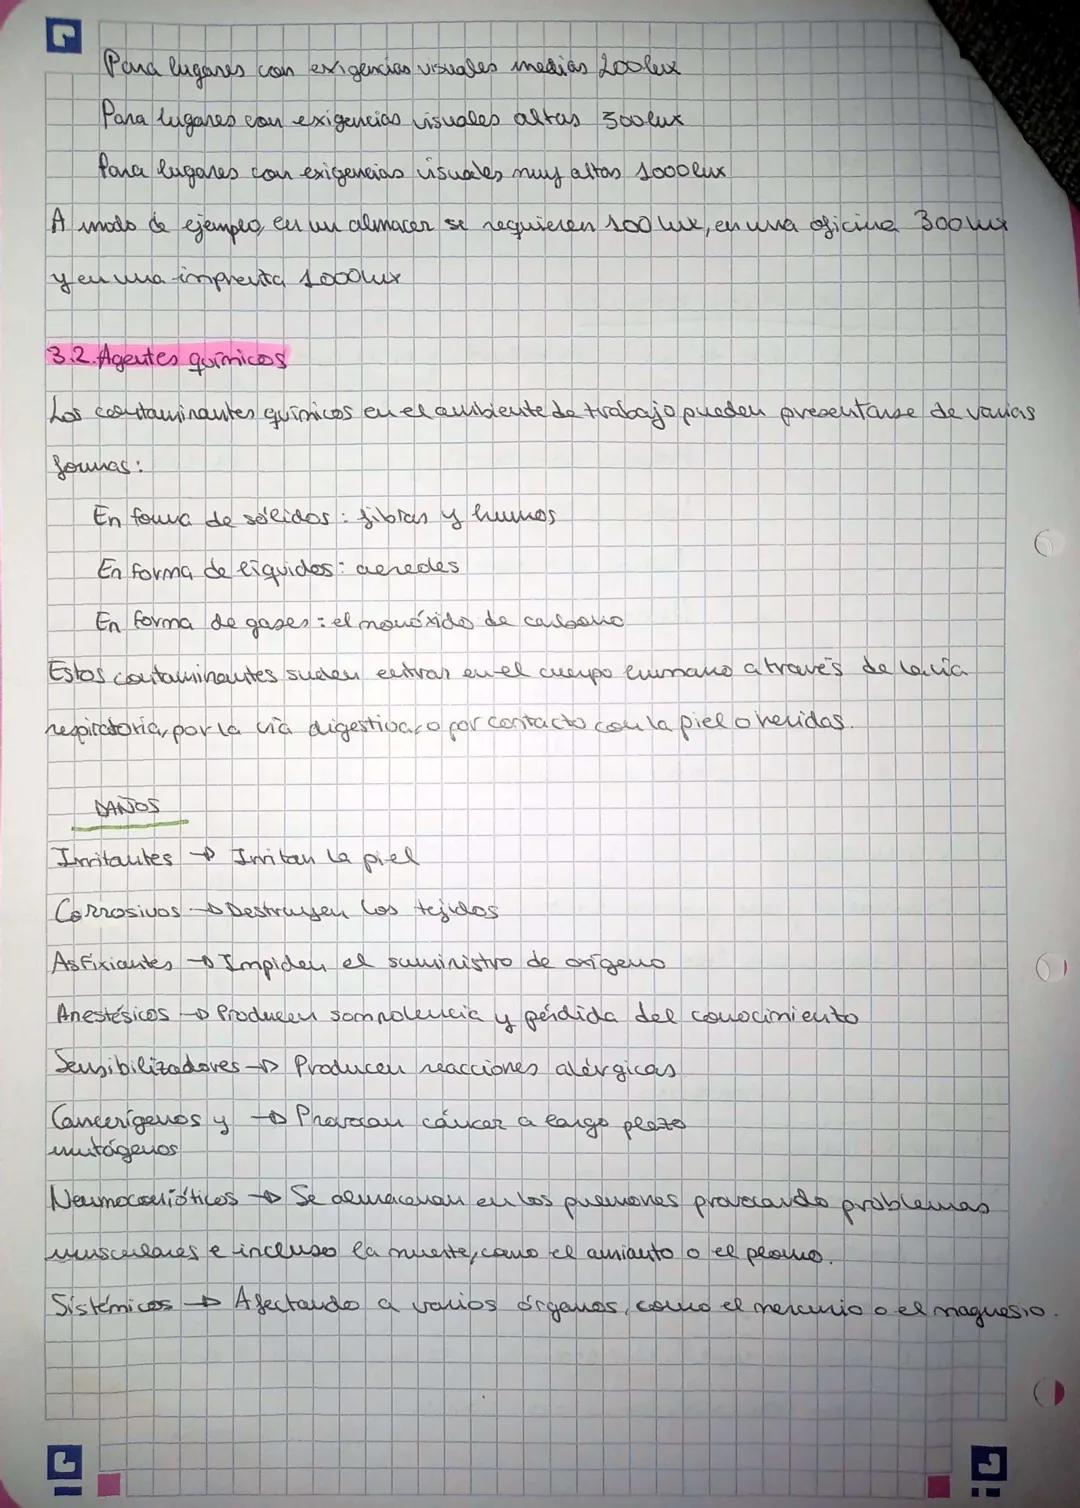 Para lugares con exigencias visuales medias 200lux
Para lugares con exigencias visuales altas 500lux
Para lugares con exigencias visuales muy altas 1000lux
A modo de ejemplo, en un almacen se requieren 100 lux, en una oficina 300 lux
y en una imprenta 1000lux
3.2. Agentes químicos
Los contaminantes químicos en el ambiente de trabajo pueden presentarse de varias
formas:
En forma de sólidos: fibras y humos
En forma de líquidos: aeredes
En forma de gases: el monóxido de carbono
Estos contaminantes suelen entrar en el cuerpo humano a través de la vía
respiratoria, por la vía digestiva, o por contacto con la piel o heridas.
DAÑOS
Irritantes → Irritan la piel
Corrosivos → Destruyen los tejidos
Asfixiantes → Impiden el suministro de oxígeno
Anestésicos → Producen somnolencia y pérdida del conocimiento
Sensibilizadores → Producen reacciones alérgicas
Cancerígenos y → Provocan cáncer a largo plazo
mutágenos
Neumoconióticos → Se almacenan en los pulmones provocando problemas
musculares e incluso la muerte, como el amianto o el plomo.
Sistémicos → Afectando a varios órganos, como el mercurio o el magnesio.